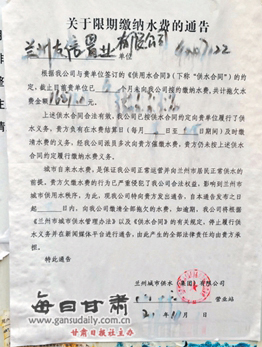 关于限期缴纳水费的通告
兰州 置业有限公司 单位
根据我公司与贵单位签订的《供用水合同》(下称“供水合同”)的约
定,截止目前贵单位已 个月未向我公司按约缴纳水费,共计拖欠水
费金额
上述供水合同合法有效,我公司已按供水合同约定向贵单位履行了供
水义务,贵方负有在水费结算日(每月 日至 日期间)及时缴
清水费的义务,经我公司派员多次向贵方催缴无果,贵方仍未按上述供水
合同的约定履行缴纳水费义务。
城市自来水水费,是保证我公司正常运营并向兰州市居民正常供水的
前提。贵方欠缴水费的行为已严重侵犯了我公司合法权益,影响到兰州市
供用水秩序。为此,现我公司特向贵方发出通告,自本通告发布之日
起 日内,向我公司缴清全部拖欠的水费,如逾期,我公司将根据
《兰州市城市供水管理办法》以及《供水合同》的有关规定,停止履行供
水义务并在新闻媒体平台进行通告,由此产生的全部法律责任均由贵方承
担。
特此通告
兰州城市供水(集团)有限公司
营业站
年 月 日
每日甘肃
www.gansudaily.com.cn
甘肃日报社主办